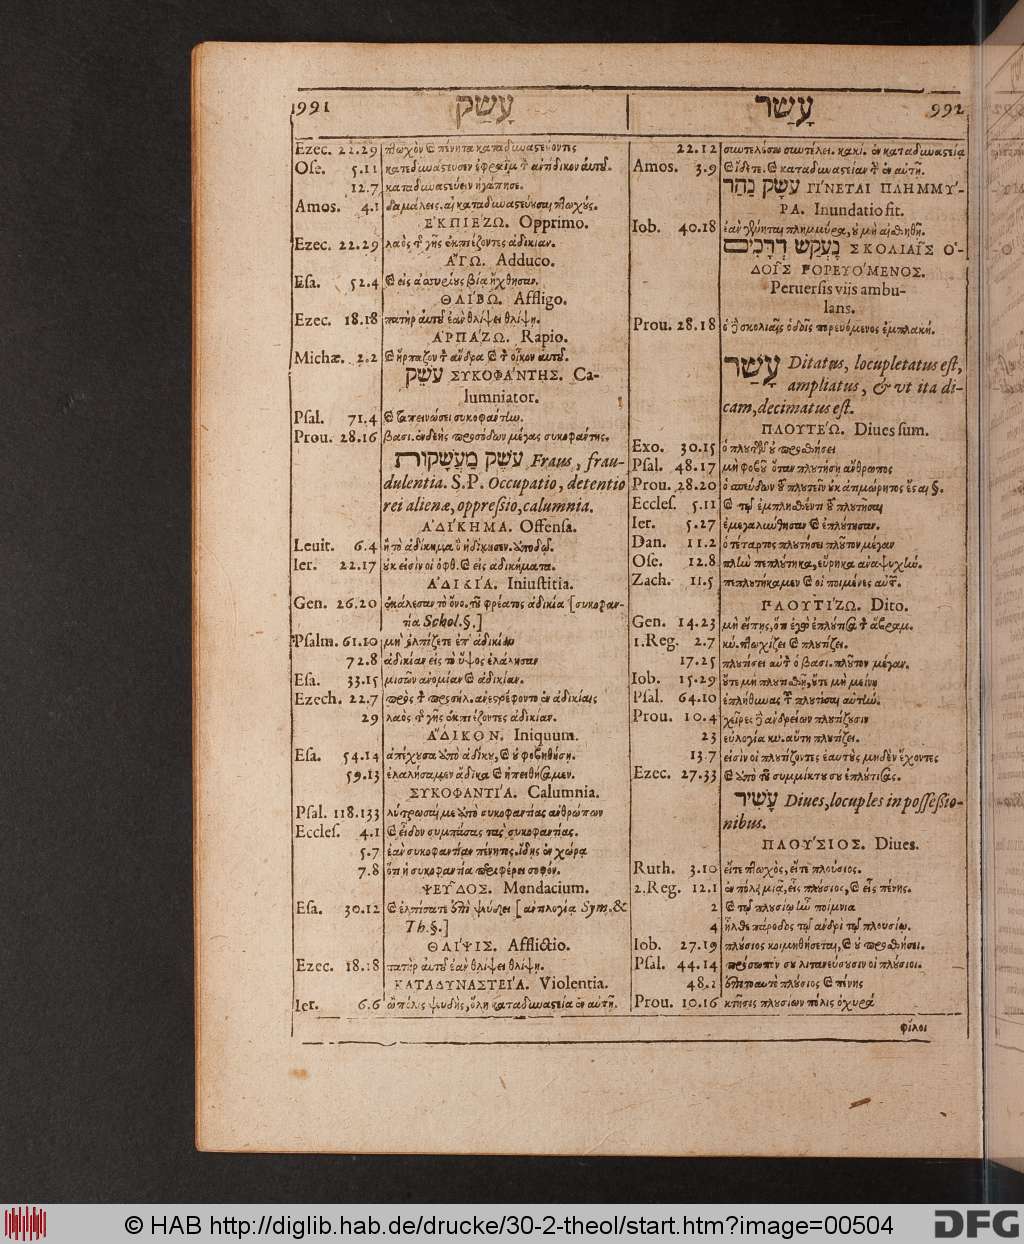 991 עָשַׁק
עָשַׁר 992
Ezec. 22.29 πτωχὸν καὶ πένητα καταδυναστεύοντες
Ose. 5.11 κατεδυνάστευσεν ἐφραῒμ τὸν ἀντίδικον αὐτοῦ.
12.7 καταδυναστεύειν ἠγάπησε.
Amos. 4.1 δαμάλεις. αἱ καταδυναστεύουσαι πτωχούς.
ἘΚΠΙΕΖΩ. Opprimo.
Ezec. 22.29 λαὸς τῆς γῆς ἐκπιέζοντες ἀδικίαν.
ἌΓΩ. Adduco.
Esa. 52.4 καὶ εἰς ἀσσυρίους βίᾳ ἤχθησαν.
ΘΛΊΒΩ. Affligo.
Ezec. 18.18 πατὴρ αὐτοῦ ἐὰν θλίψει θλίψῃ.
ἉΡΠΆΖΩ. Rapio.
Michæ. 2.2 καὶ ἥρπαζον τὸν ἄνδρα καὶ τὸν οἶκον αὐτοῦ.
עֹשֵׁק ΣΥΚΟΦΆΝΤΗΣ. Ca-
lumniator.
Psal. 71.4 καὶ ταπεινώσει συκοφάντην.
Prou. 28.16 βασι. ἐνδεὴς προσόδων μέγας συκοφάντης.
עֹשֶׁק מַעֲשַׁקּוֹת Fraus, frau-
dulentia. S.P. Occupatio, detentio
rei alienæ, oppressio, calumnia.
ἈΔΊΚΗΜΑ. Offensa.
Leuit. 6.4 ἢ τὸ ἀδίκημα ὃ ἠδίκησεν. ἀποδῷ.
Ier. 22.17 οὐκ εἰσὶν οἱ ὀφθ. καὶ εἰς ἀδικήματα.
ἈΔΙΚΊΑ. Iniustitia.
Gen. 26.20 ἐκάλεσαν τὸ ὄνο. τοῦ φρέατος ἀδικία [συκοφαν-
τία Schol.§.]
Psalm. 61.10 μὴ ἐλπίζετε ἐπ' ἀδικίαν
72.8 ἀδικίαν εἰς τὸ ὕψος ἐλάλησαν
Esa. 33.15 μισῶν ἀνομίαν καὶ ἀδικίαν.
Ezech. 22.7 πρὸς τὸν προσήλ. ἀνεστρέφοντο ἐν ἀδικίαις
29 λαὸς τῆς γῆς ἐκπιέζοντες ἀδικίαν.
ἌΔΙΚΟΝ. Iniquum.
Esa. 54.14 ἀπέχου ἀπὸ ἀδίκου, καὶ οὐ φοβηθήσῃ.
59.13 ἐλαλήσαμεν ἄδικα καὶ ἠπειθήσαμεν.
ΣΥΚΟΦΑΝΤΊΑ. Calumnia.
Psal. 118.133 λύτρωσαί με ἀπὸ συκοφαντίας ἀνθρώπων
Eccles. 4.1 καὶ εἶδον συμπάσας τὰς συκοφαντίας.
5.7 ἐὰν συκοφαντίαν πένητος. ἴδῃς ἐν χώρᾳ
7.8 ὅτι ἡ συκοφαντία περιφέρει σοφόν.
ΨΕΥ͂ΔΟΣ. Mendacium.
Esa. 30.12 καὶ ἐλπίσατε ἐπὶ ψεύδει [ἀντιλογίᾳ Sym. &
Th.§.]
ΘΛΊΨΙΣ. Afflictio.
Ezec. 18.18 πατὴρ αὐτοῦ ἐὰν θλίψει θλίψῃ.
ΚΑΤΑΔΥΝΑΣΤΕΊΑ. Violentia.
Ier. 6.6 ὦ πόλις ψευδής, ὅλη καταδυναστεία ἐν αὐτῇ.
22.12 συντελέσω συντέλει. κακί. ἐν καταδυναστείᾳ
Amos. 3.9 καὶ ἴδετε. καὶ καταδυναστείαν τὴν ἐν αὐτῇ.
עָשַׁק נַהַר ΓΙΝΕΤΑΙ ΠΛΗΜΜΎ-
ΡΑ. Inundatio fit.
Iob. 40.18 ἐὰν γένηται πλημμύρα, οὐ μὴ αἰσθηθῇ.
נֶעְקַשׁ דְּרָכַיִם ΣΚΟΛΙΑΙ͂Σ Ὁ-
ΔΟΙ͂Σ ΠΟΡΕΥΌΜΕΝΟΣ.
Peruersis viis ambu-
lans.
Prou. 28.18 ὁ δὲ σκολιαῖς ὁδοῖς πορευόμενος ἐμπλακή.
עָשַׁר Ditatus, locupletatus est,
ampliatus, & vt ita di-
cam, decimatus est.
ΠΛΟΥΤΈΩ. Diues sum.
Exo. 30.15 ὁ πλουτῶν οὐ προσθήσει
Psal. 48.17 μὴ φοβοῦ ὅταν πλουτήσῃ ἄνθρωπος
Prou. 28.20 ὁ σπεύδων τοῦ πλουτεῖν οὐκ ἀτιμώρητος ἔσται §.
Eccles. 5.11 καὶ τῷ ἐμπλησθέντι τοῦ πλουτῆσαι
Ier. 5.27 ἐμεγαλύνθησαν καὶ ἐπλούτησαν.
Dan. 11.2 ὁ τέταρτος πλουτήσει πλοῦτον μέγαν
Ose. 12.8 πλὴν πεπλούτηκα, εὕρηκα ἀναψυχήν.
Zach. 11.5 πεπλουτήκαμεν καὶ οἱ ποιμένες αὐτῶν.
ΠΛΟΥΤΙΖΩ. Dito.
Gen. 14.23 μὴ εἴπῃς, ὅτι ἐγὼ ἐπλούτισα τὸν ἄβραμ.
1.Reg. 2.7 κύ. πτωχίζει καὶ πλουτίζει.
17.25 πλουτίσει αὐτὸν ὁ βασι. πλοῦτον μέγαν.
Iob. 15.29 οὔτε μὴ πλουτισθῇ, οὔτε μὴ μείνῃ
Psal. 64.10 ἐπλήθυνας τοῦ πλουτίσαι αὐτήν.
Prou. 10.4 χεῖρες δὲ ἀνδρείων πλουτίζουσιν
23 εὐλογία κυ. αὕτη πλουτίζει.
13.7 εἰσὶν οἱ πλουτίζοντες ἑαυτοὺς μηδὲν ἔχοντες
Ezec. 27.33 καὶ ἀπὸ τοῦ συμμίκτου σου ἐπλούτισας.
עָשִׁיר Diues, locuples in possessio-
nibus.
ΠΛΟΎΣΙΟΣ. Diues.
Ruth. 3.10 εἴτε πτωχός, εἴτε πλούσιος.
2.Reg. 12.1 ἐν πόλει μιᾷ, εἷς πλούσιος, καὶ εἷς πένης.
2 καὶ τῷ πλουσίῳ ἦν ποίμνια
4 ἦλθε πάροδος τῷ ἀνδρὶ τῷ πλουσίῳ.
Iob. 27.19 πλούσιος κοιμηθήσεται, καὶ οὐ προσθήσει.
Psal. 44.14 πρόσωπόν σου λιτανεύσουσιν οἱ πλούσιοι.
48.2 ἐπιτοαυτὸ πλούσιος καὶ πένης
Prou. 10.16 κτῆσις πλουσίων πόλις ὀχυρά
φίλοι
© HAB http://diglib.hab.de/drucke/30-2-theol/start.htm?image=00504 DFG